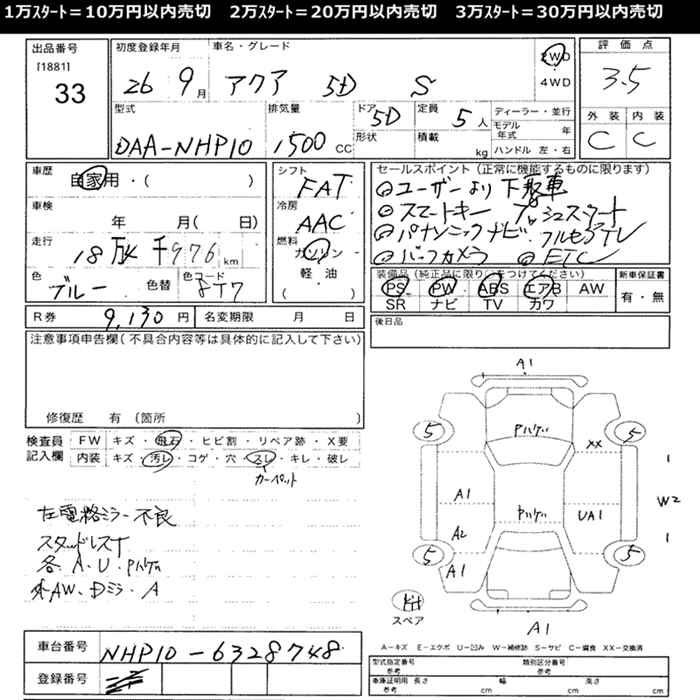 1万スタート=10万円以内売切 2万スタート=20万円以内売切 3万スタート=30万円以内売切
出品番号
[1881]
33
初度登録年月
26 9月
車名・グレード
アクア 5D S
2WD
4WD
評価点
3.5
外装 内装
C C
型式
DAA-NHP10
排気量
1500 CC
ドア 5D
形状
定員 5人
積載 kg
ディーラー・並行
モデル年式 年
ハンドル 左・右
車歴
自家用・( )
車検
年 月( 日)
走行
18万 千976 km
色
ブルー 色替
色コード
8T7
シフト
FAT
冷房
AAC
燃料
ガソリン・
軽油
( )
セールスポイント(正常に機能するものに限ります)
◎ユーザーより下取車
◎スマートキー プッシュスタート
◎パナソニックナビ・フルセグTV
◎バックカメラ ◎ETC
装備品(純正品に限り○をつけてください)
PS PW ABS エアB AW
SR ナビ TV カワ
新車保証書
有・無
R券 9,130円 名変期限 月 日
後日品
注意事項申告欄(不具合内容等は具体的に記入して下さい)
修復歴 有(箇所 )
検査員
記入欄
FW キズ・飛石・ヒビ割・リペア跡・X要
内装 キズ・汚レ・コゲ・穴・スレ・キレ・破レ
カーペット
左電格ミラー不良
スタッドレス付
各・A・U・Pハゲ有
外AW、Dミラ・A
A1
5 Pハゲ 5
XX
A1 Pハゲ UA1 W2
A2
5 A1 5
スペア
A1
A-キズ E-エクボ U-凹み W-補修跡 S-サビ C-腐食 XX-交換済
車台番号 NHP10-6328748
登録番号
型式指定番号 参考 類別区分番号 参考
車庫証明用 参考 長さ cm 幅 cm 高さ cm